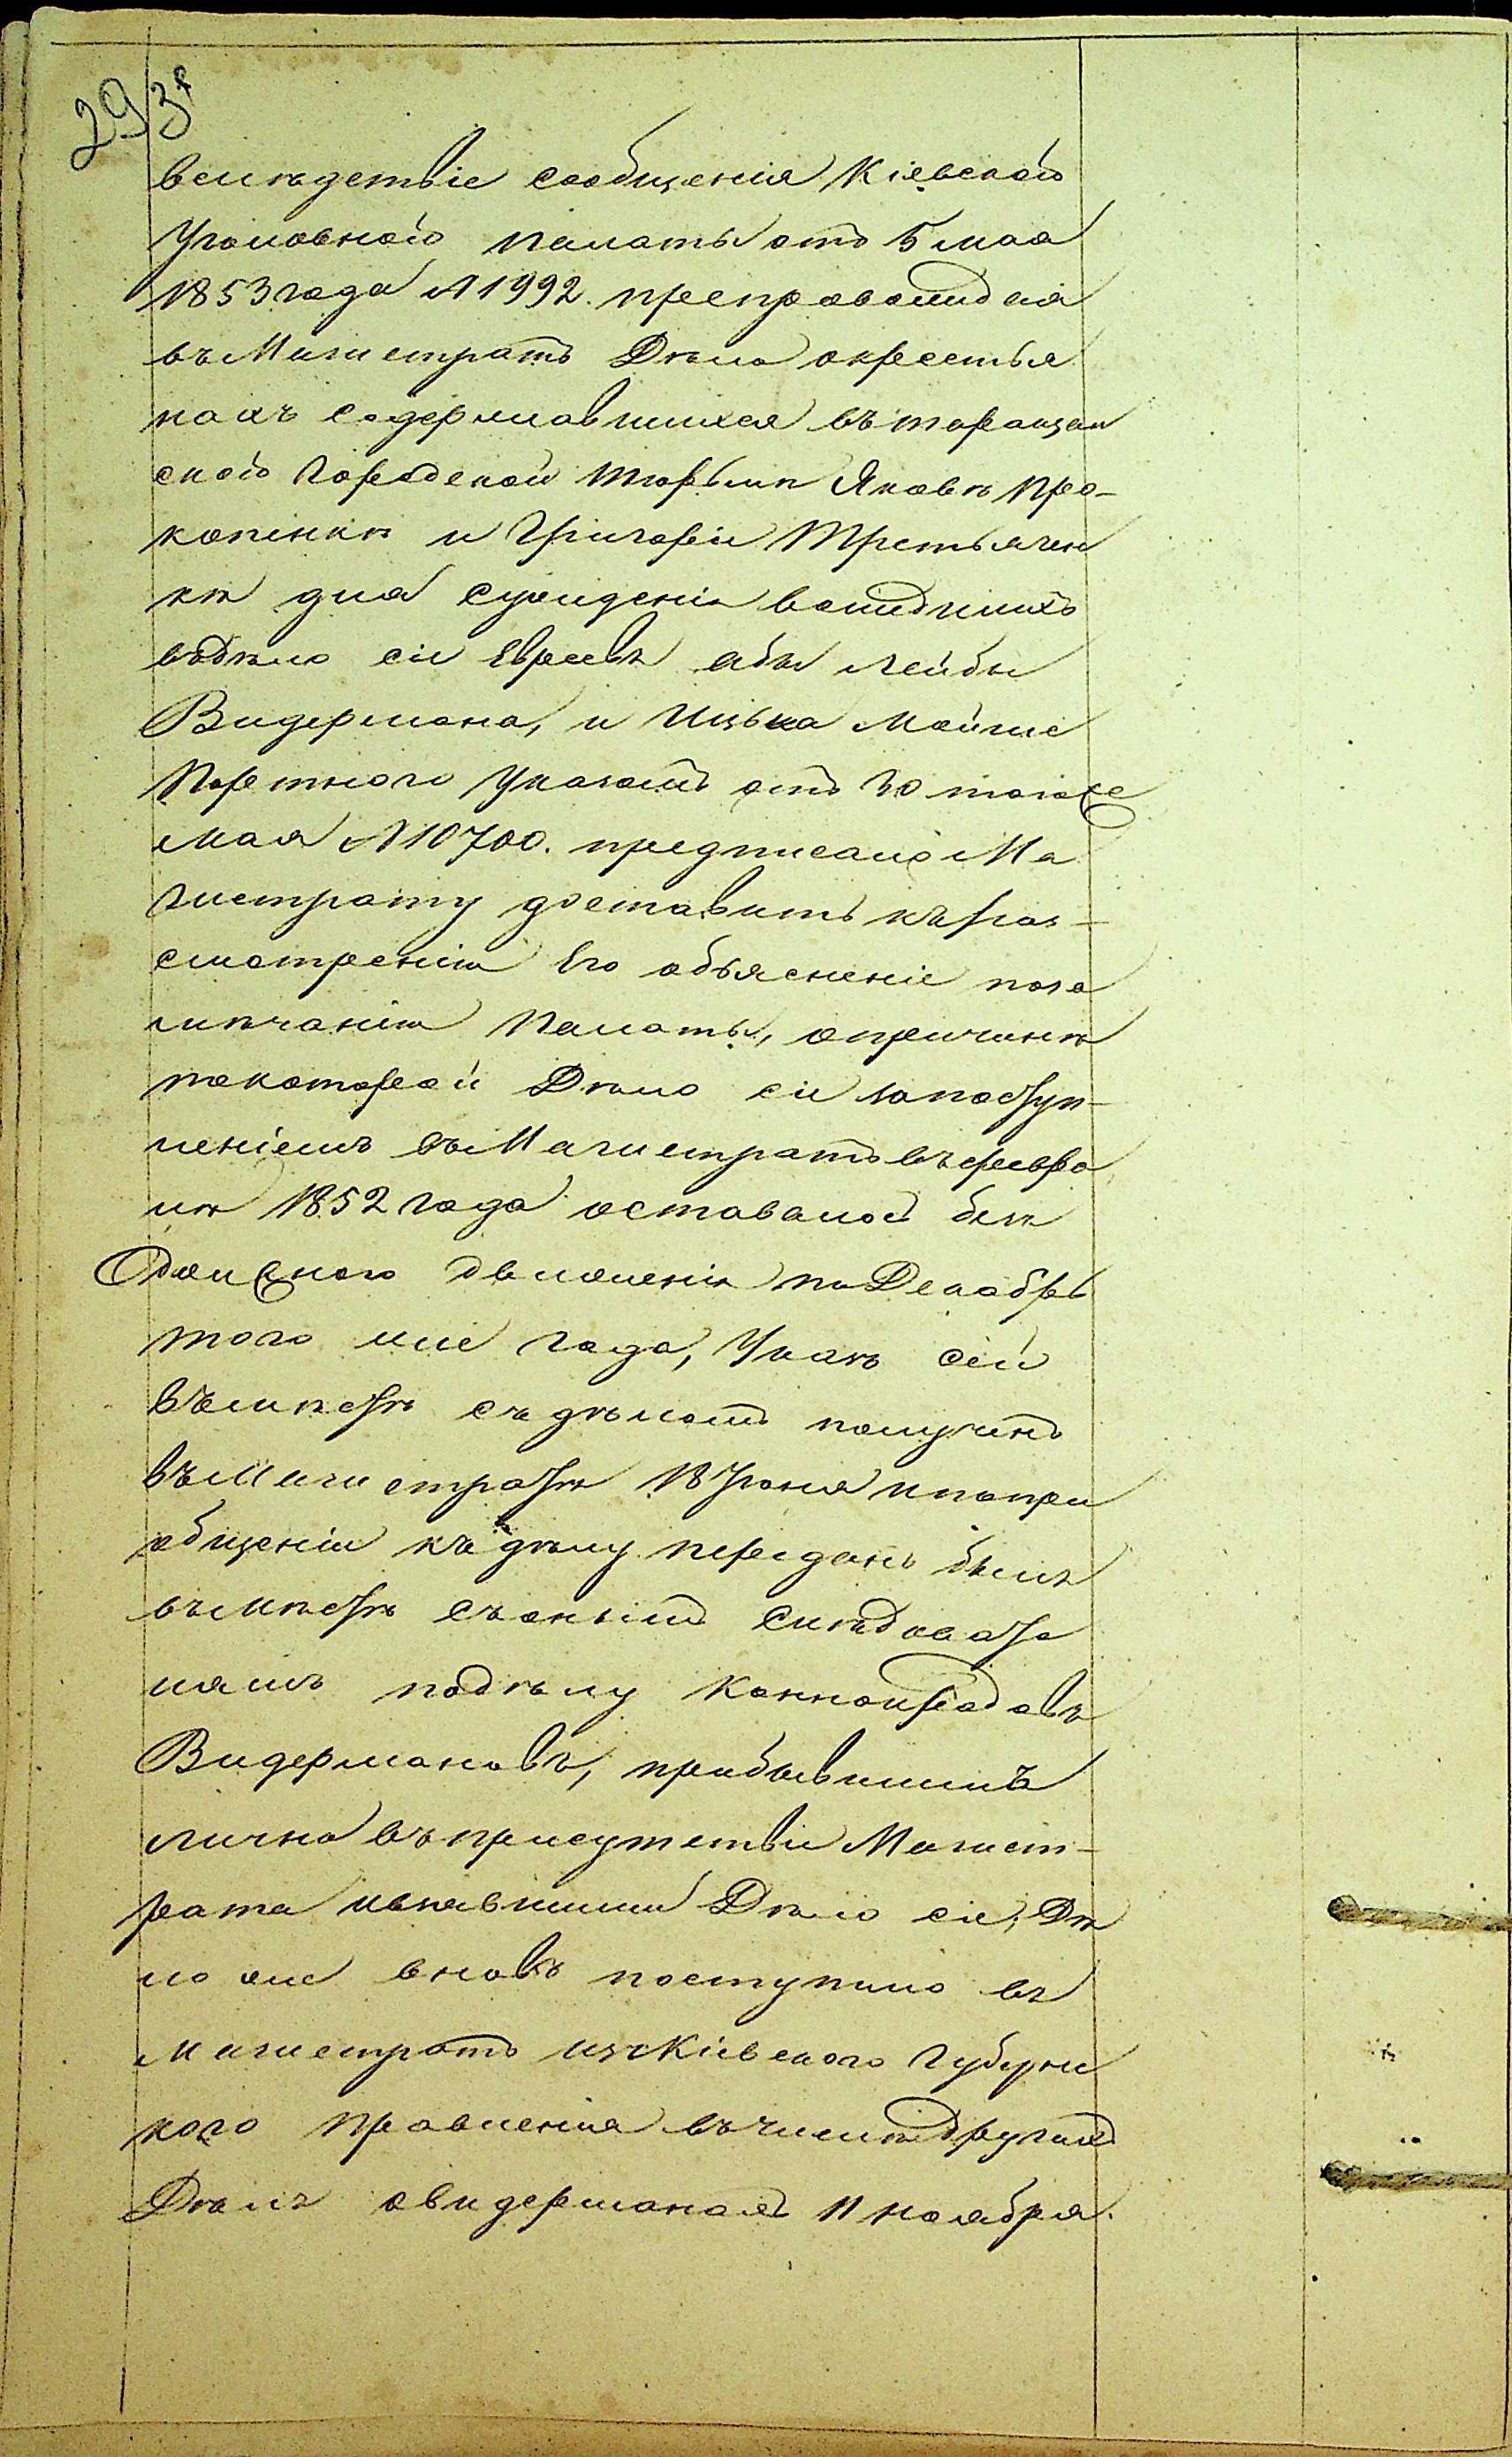 293
вслѣдствіе сообщенія Кіевской
Уголовной палаты отъ 5 мая
1853 года № 1992. препровождая
въ Магистратъ Дѣло окрестья
нахъ содержавшихся въ таращан
ской Городской тюрьмѣ Яковѣ Про-
копенкѣ и Григоріи Третьячен
кѣ для сужденія вошедшихъ
въ дѣло сіе Евреевъ Абы Лейбы
Видермана, и Ицька Мойше
Портного Указомъ отъ 30 тогоже
мая № 10700. предписало Ма
гистрату доставить къ раз-
смотренію Его объясненіе поза
мѣчанію Палаты, опричинѣ
покоторой Дѣло сіе запоступ-
леніемъ въ Магистратъ въ февра
лѣ 1852 года оставалось безъ
должного движенія по Декабрь
того же года, Указъ сей
вместѣ съ дѣломъ полученъ
въ Магистратѣ 18 Іюня ипопри
общеніи къ дѣлу переданъ былъ
вместѣ съ онымъ Слѣдовате
лямъ подѣлу Конокрадовъ
Видермановъ, прибывшимъ
лично въ присутствіе Магист-
рата изъявшими Дѣло сіе, Дѣ
ло оне вновь поступило въ
Магистратъ изъ Кіевского Губерн
ского правленія въ числѣ другихъ
Дѣлъ овидерманахъ 11 ноября.